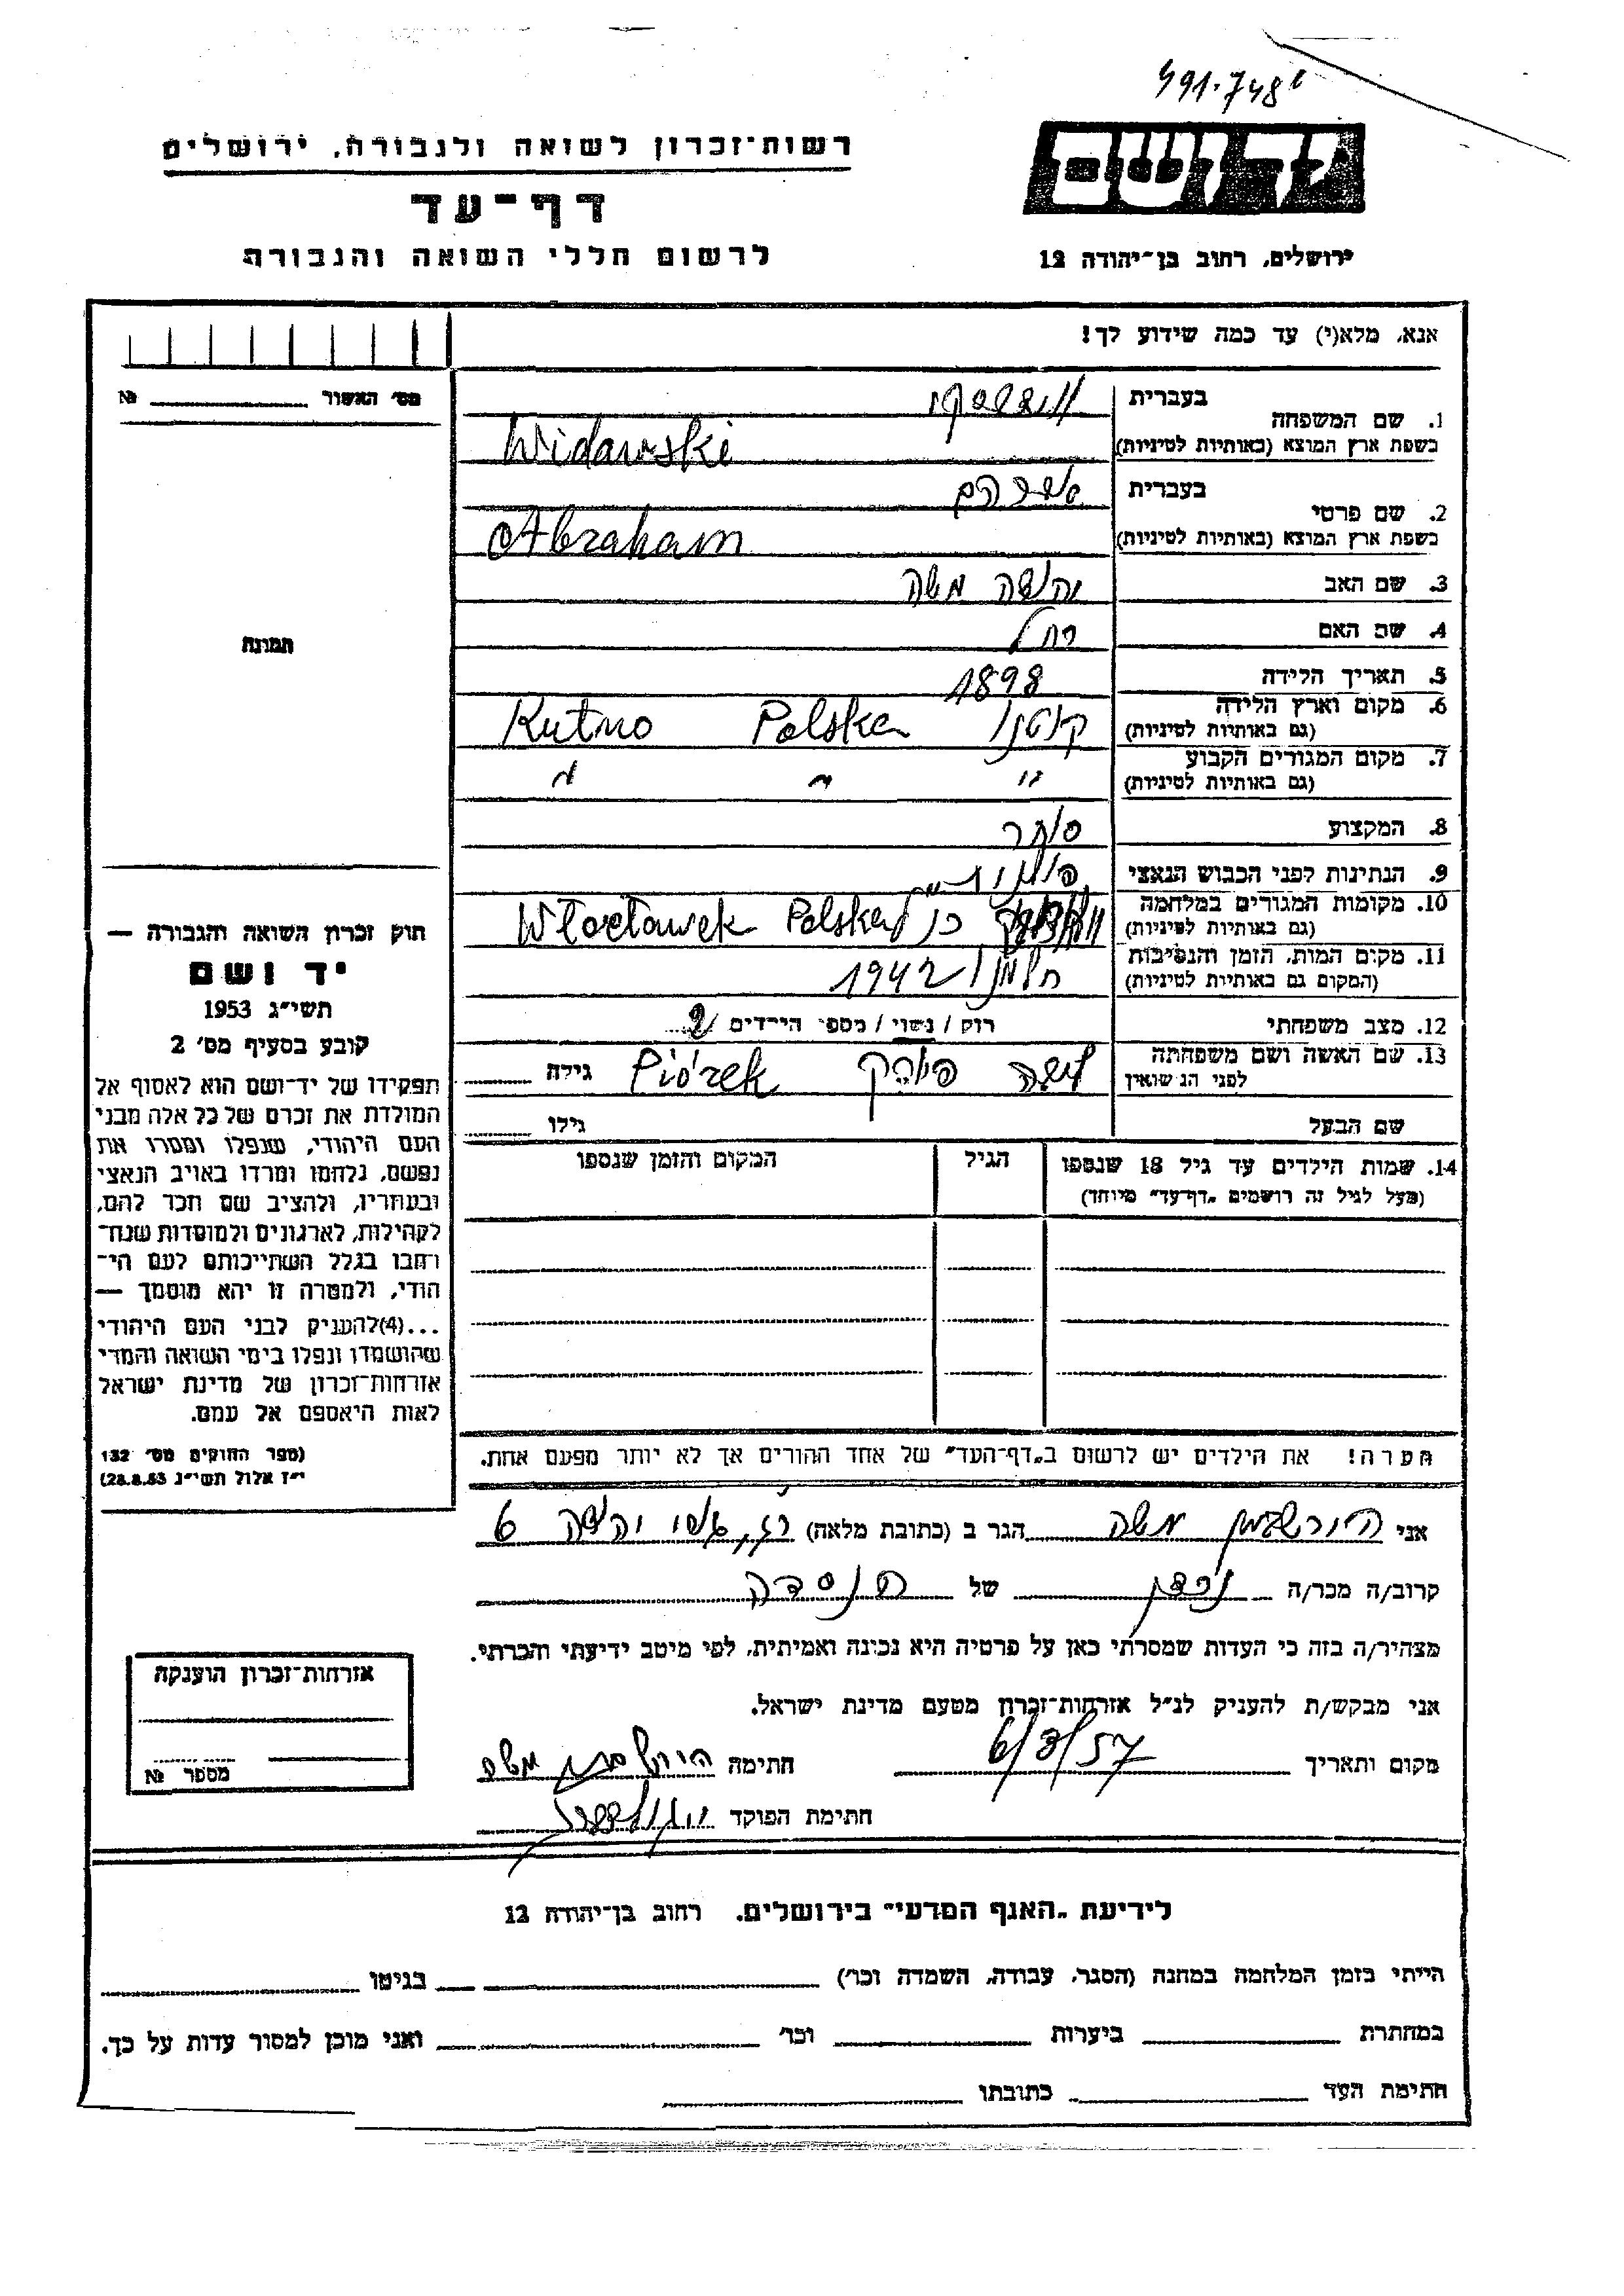 491.748
יד ושם
ירושלים, רחוב בן־יהודה 12
רשות־זכרון לשואה ולגבורה, ירושלים
דף־עד
לרשום חללי השואה והגבורה
אנא, מלא(י) עד כמה שידוע לך!
מס׳ האשור № 
1. שם המשפחה בעברית
בשפת ארץ המוצא (באותיות לטיניות) Widawski
2. שם פרטי בעברית אברהם
בשפת ארץ המוצא (באותיות לטיניות) Abraham
3. שם האב משה
4. שם האם רחל
5. תאריך הלידה 1898
6. מקום וארץ הלידה (גם באותיות לטיניות) קוטנו Polska Kutno
7. מקום המגורים הקבוע (גם באותיות לטיניות) " " "
8. המקצוע סוחר
9. הנתינות לפני הכבוש הנאצי פולנית
10. מקומות המגורים במלחמה (גם באותיות לטיניות) Polska Włocławek
11. מקום המות, הזמן והנסיבות (המקום גם באותיות לטיניות) חלמנו 1942
12. מצב משפחתי רווק / נשוי / מספר הילדים 2
13. שם האשה ושם משפחתה לפני הנשואין פיורק Piórek גילה
שם הבעל גילו
14. שמות הילדים עד גיל 18 שנספו (מעל לגיל זה רושמים „דף־עד״ מיוחד) הגיל המקום והזמן שנספו
הערה! את הילדים יש לרשום ב„דף־העד״ של אחד ההורים אך לא יותר מפעם אחת.
תמונה
חוק זכרון השואה והגבורה —
יד ושם
תשי״ג 1953
קובע בסעיף מס׳ 2
תפקידו של יד־ושם הוא לאסוף אל
המולדת את זכרם של כל אלה מבני
העם היהודי, שנפלו ומסרו את
נפשם, נלחמו ומרדו באויב הנאצי
ובעוזריו, ולהציב שם וזכר להם,
לקהילות, לארגונים ולמוסדות שנח־
רבו בגלל השתייכותם לעם הי־
הודי, ולמטרה זו יהא מוסמך —
...(4) להעניק לבני העם היהודי
שהושמדו ונפלו בימי השואה והמרי
אזרחות־זכרון של מדינת ישראל
לאות היאספם אל עמם.
(ספר החוקים מס׳ 132
י״ז אלול תשי״ג 28.8.53)
אני הירשברג משה הגר ב (כתובת מלאה) 6
קרוב/ה מכר/ה של הנספה
מצהיר/ה בזה כי העדות שמסרתי כאן על פרטיה היא נכונה ואמיתית, לפי מיטב ידיעתי והכרתי.
אני מבקש/ת להעניק לנ״ל אזרחות־זכרון מטעם מדינת ישראל.
מקום ותאריך 6/3/57 חתימה
חתימת הפוקד
אזרחות־זכרון הוענקה
מספר №
לידיעת „האגף המדעי״ בירושלים, רחוב בן־יהודה 12
הייתי בזמן המלחמה במחנה (הסגר, עבודה, השמדה וכו׳) בגיטו
במחתרת ביערות וכו׳ ואני מוכן למסור עדות על כך.
חתימת העד כתובתו